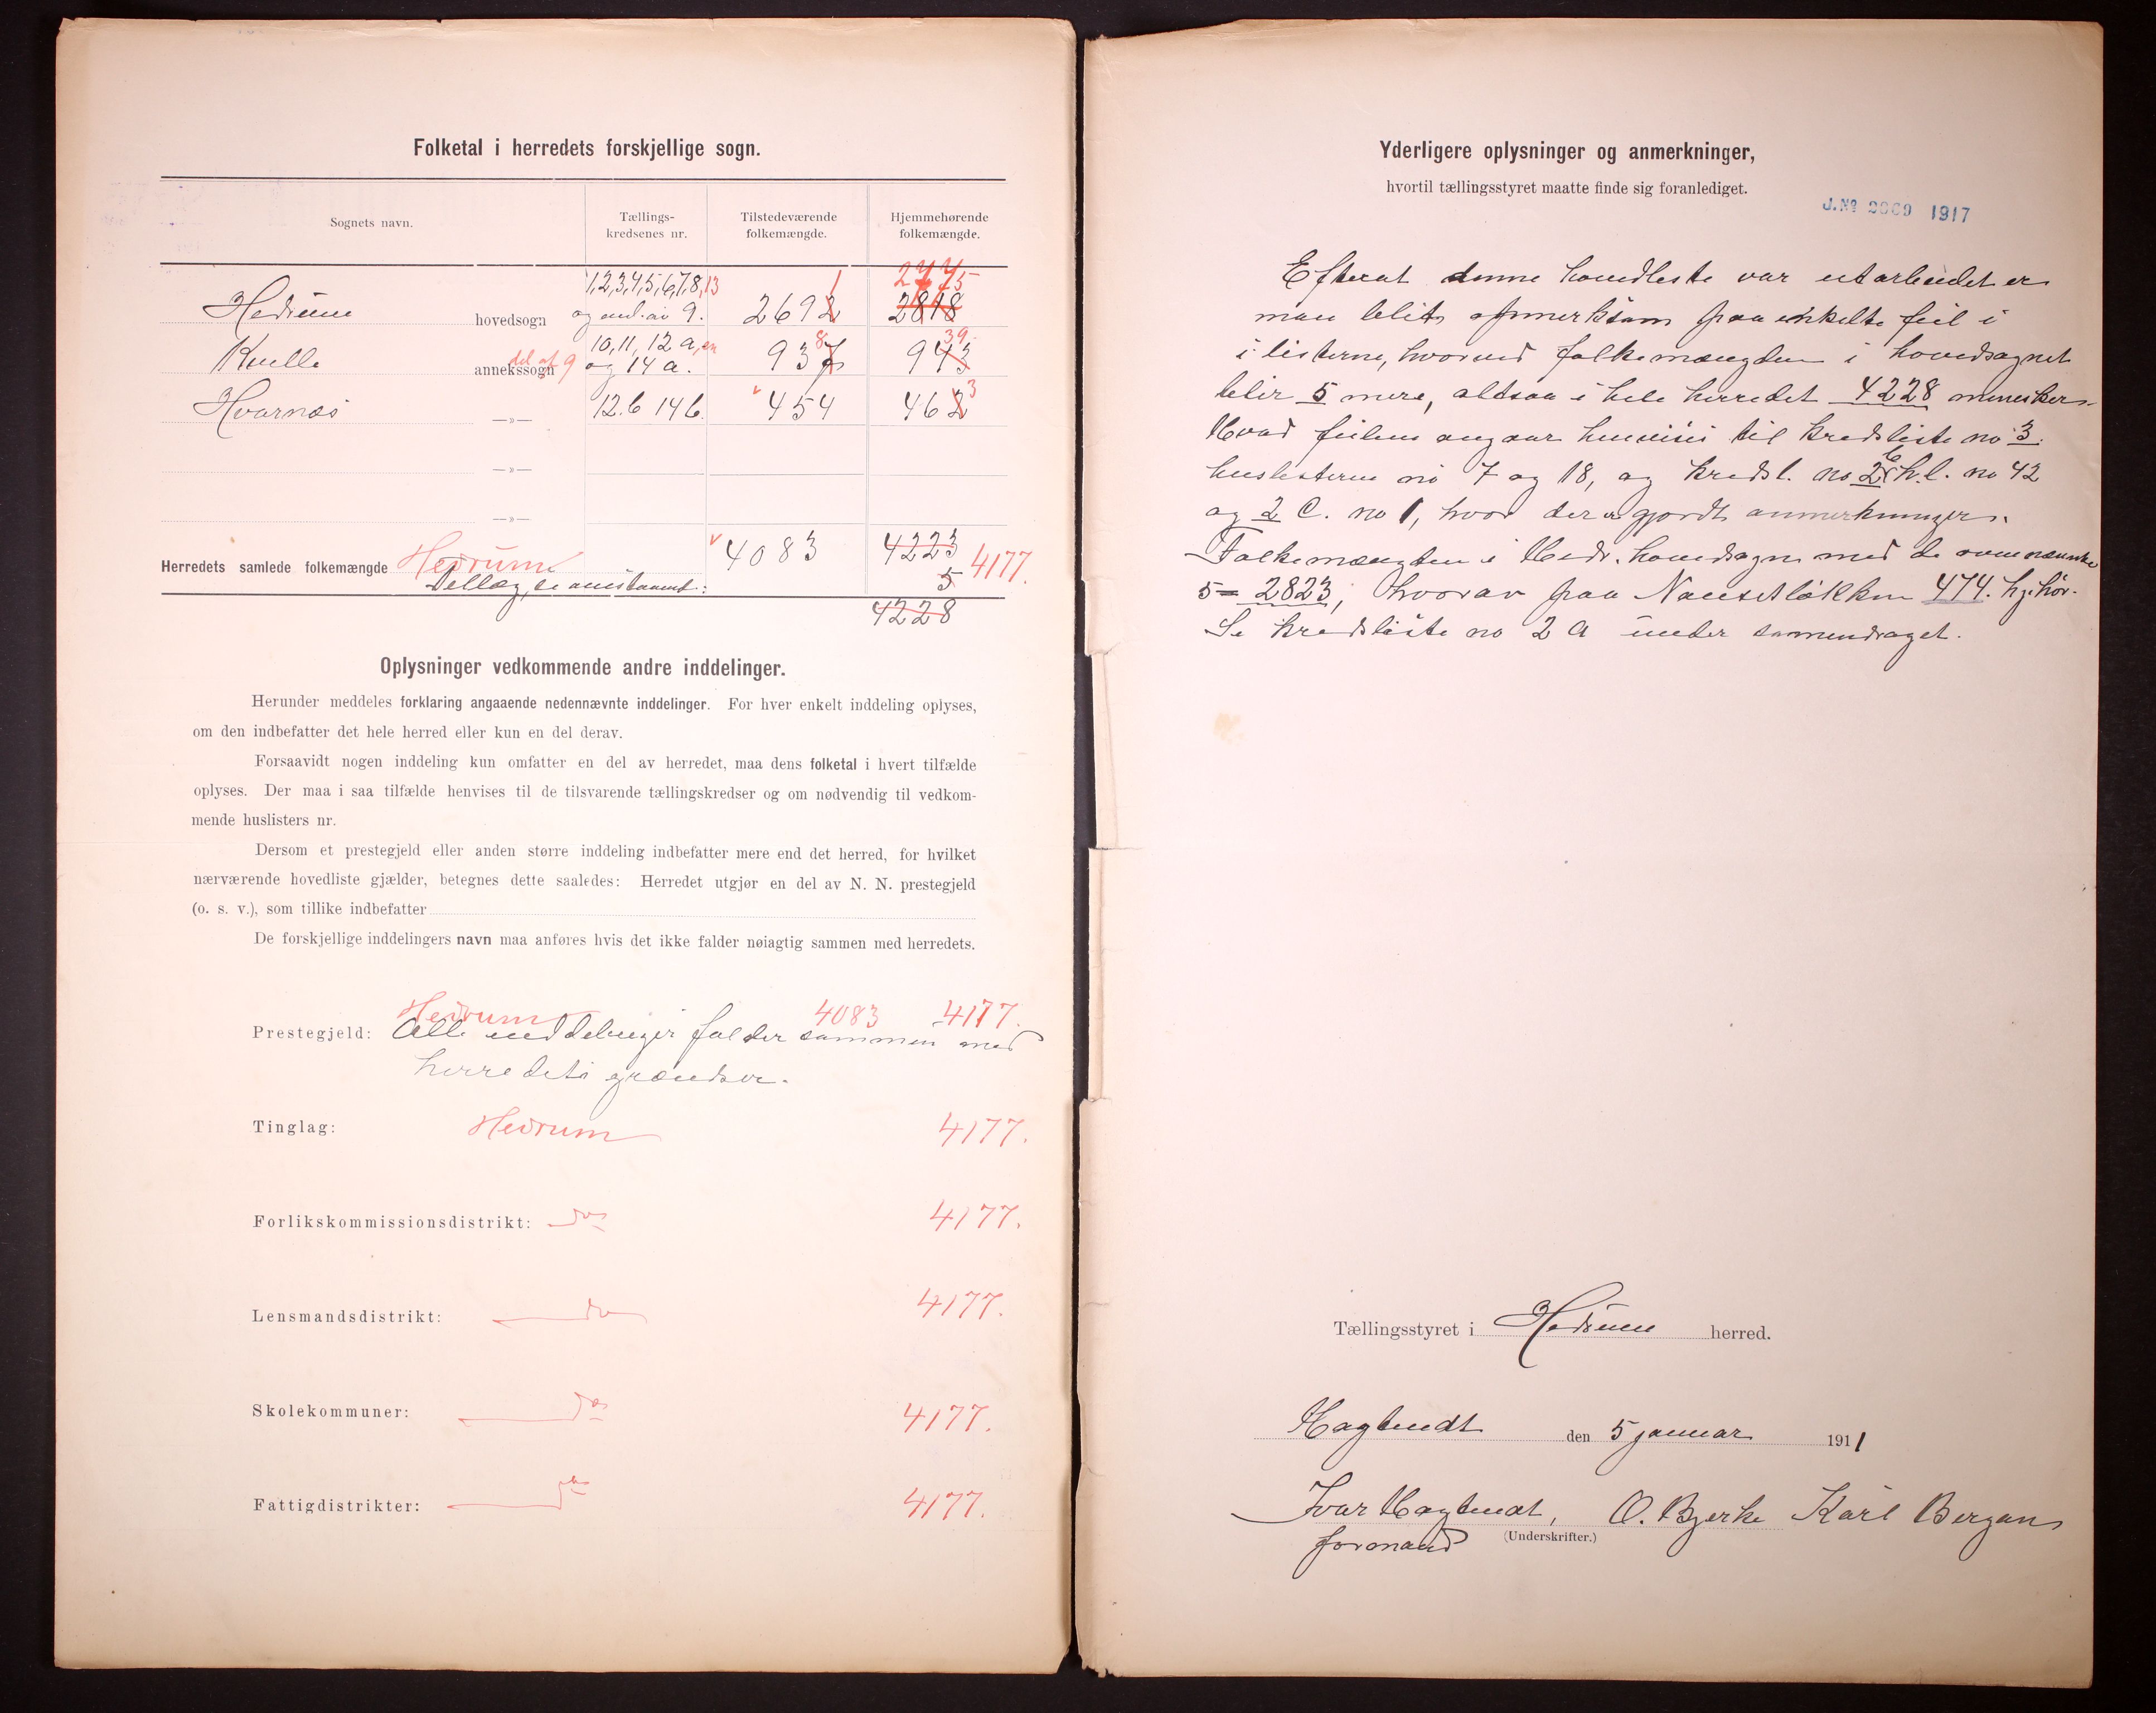 Folketal i herredets forskjellige sogn.
Sognets navn.
Tællings-
kredsenes nr.
Tilstedeværende
folkemængde.
Hjemmehørende
folkemængde.
1,2,3,4,5,6,7,8,13
2775
Hedrum hovedsogn og av 9. 2692 1 2818
10,11, 12 a,
Kvelle annekssogn del af 9 og 14 a. 937 8 943 39
Hvarnes —»— 12.b 14b. 454 462 3
—»—
—»—
Herredets samlede folkemængde Hedrum 4083 4223 4177.
5
4228
Oplysninger vedkommende andre inddelinger.
Herunder meddeles forklaring angaaende nedennævnte inddelinger. For hver enkelt inddeling oplyses,
om den indbefatter det hele herred eller kun en del derav.
Forsaavidt nogen inddeling kun omfatter en del av herredet, maa dens folketal i hvert tilfælde
oplyses. Der maa i saa tilfælde henvises til de tilsvarende tællingskredser og om nødvendig til vedkom-
mende huslisters nr.
Dersom et prestegjeld eller anden større inddeling indbefatter mere end det herred, for hvilket
nærværende hovedliste gjælder, betegnes dette saaledes: Herredet utgjør en del av N. N. prestegjeld
(o. s. v.), som tillike indbefatter
De forskjellige inddelingers navn maa anføres hvis det ikke falder nøiagtig sammen med herredets.
Hedrum 4083 4177.
Prestegjeld: Alle inddelinger falder sammen med
herredets grændser.
Tinglag: Hedrum 4177.
Forlikskommissionsdistrikt: do 4177.
Lensmandsdistrikt: do 4177.
Skolekommuner: do 4177.
Fattigdistrikter: do 4177.
Yderligere oplysninger og anmerkninger,
hvortil tællingsstyret maatte finde sig foranlediget.
J.No 1917
Efterat denne hovedliste var utarbeidet er
man blit opmerksom paa enkelte feil i
i listerne, hvorved folkemængden i hovedsognet
blir 5 mere, altsaa i hele herredet 4228 mennesker.
Hvad feilene angaar henvises til kredsliste no 3.
huslisterne no 7 og 18, og kredsl. no 2 b h.l. no 42
og 2 C. no 1, hvor der er gjordt anmerkninger.
Folkemængden i Hedr. hovedsogn med de ovennævnte
5 = 2823, hvorav paa Nansetløkken 474. hjhör.
Se kredsliste no 2 a under sammendraget.
Tællingsstyret i Hedrum herred.
Hagtvedt den 5 januar 1911
Ivar Hagtvedt, O. Bjerke Karl Bergan
formand (Underskrifter.)